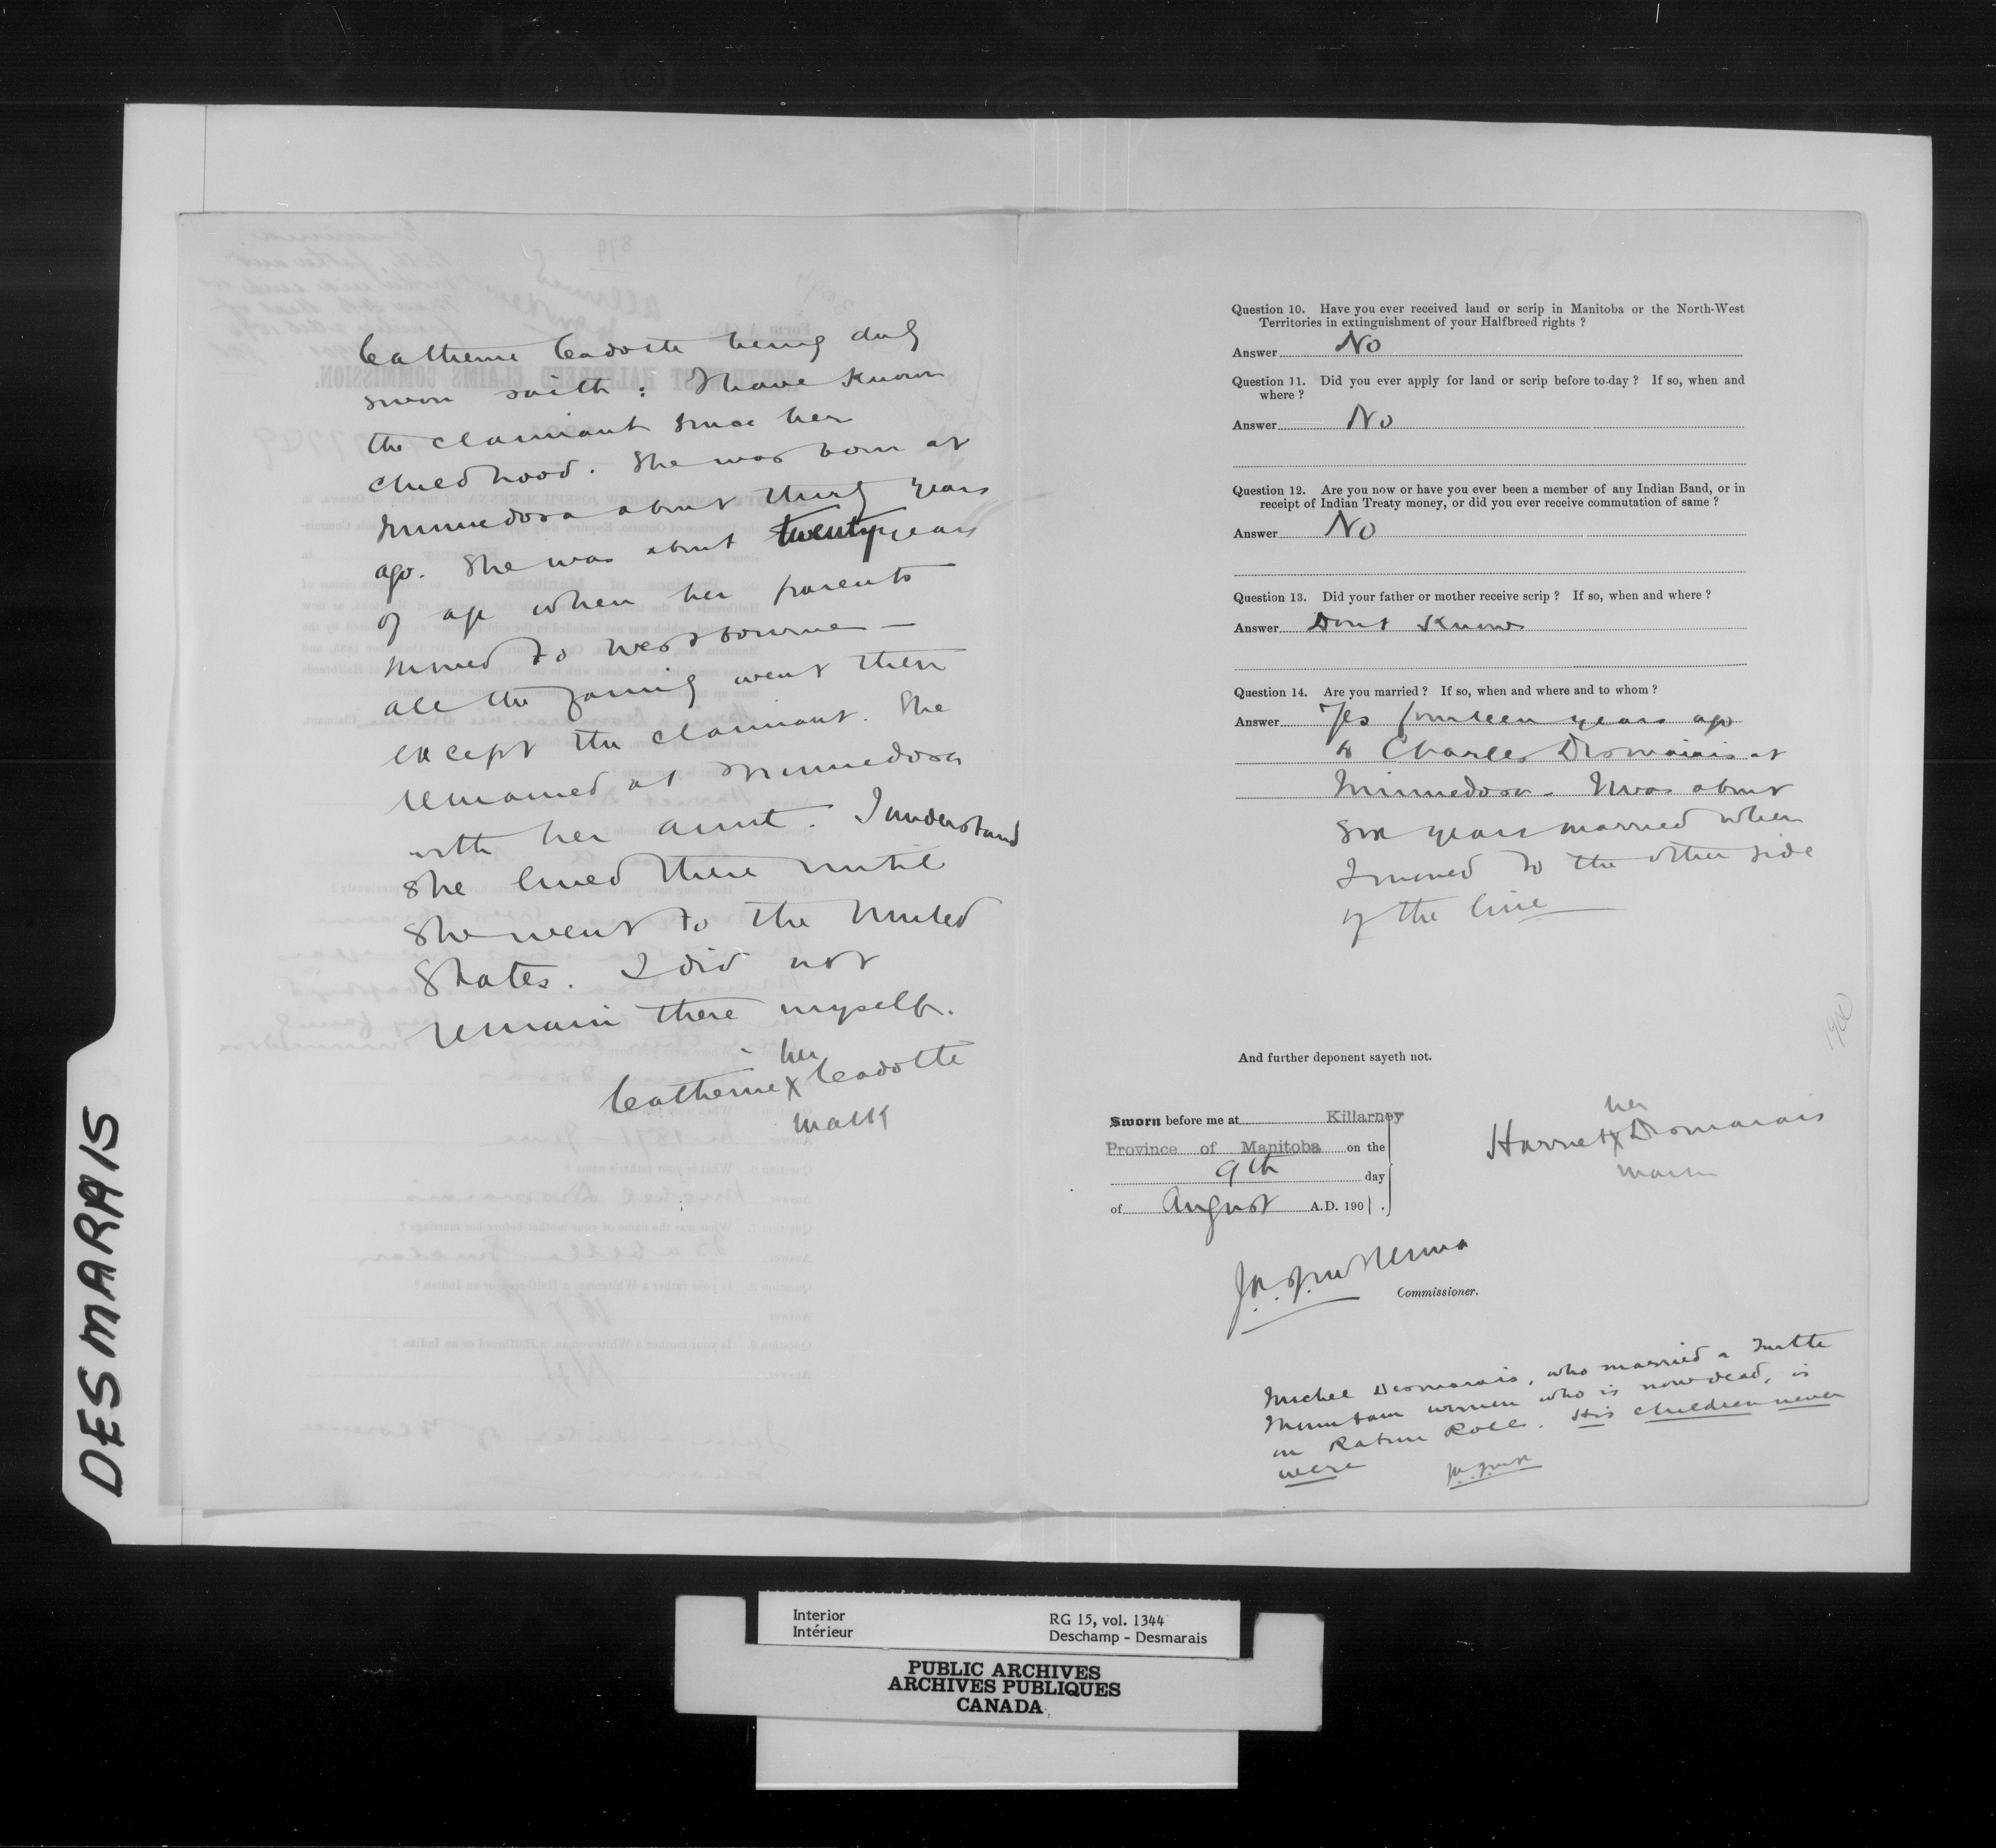 DESMARAIS
Catherine Cadotte being duly
sworn saith : I have known
the claimant since her
childhood. She was born at
Minnedosa about thirty years
ago. She was about twenty years
of age when her parents
moved to Westbourne —
all the family went then
except the claimant. She
remained at Minnedosa
with her aunt. I understand
she lived there until
she went to the United
States. I did not
remain there myself.
her
Catherine X Cadotte
mark
Question 10. Have you ever received land or scrip in Manitoba or the North-West
Territories in extinguishment of your Halfbreed rights ?
Answer No
Question 11. Did you ever apply for land or scrip before to-day ? If so, when and
where ?
Answer No
Question 12. Are you now or have you ever been a member of any Indian Band, or in
receipt of Indian Treaty money, or did you ever receive commutation of same ?
Answer No
Question 13. Did your father or mother receive scrip ? If so, when and where ?
Answer Dont Know
Question 14. Are you married ? If so, when and where and to whom ?
Answer Yes fourteen years ago
to Charles Desmarais at
Minnedosa. I was about
six years married when
I moved to the other side
of the line
1900
And further deponent sayeth not.
Sworn before me at Killarney
Province of Manitoba on the
9th day
of August A.D. 1901.
her
Harriet X Desmarais
mark
J.A.J. McKenna
Commissioner.
Michel Desmarais, who married a Turtle
Mountain woman who is now dead, is
on Ration Roll. His children never
were
J.A.J. McK
Interior
Intérieur
RG 15, vol. 1344
Deschamp - Desmarais
PUBLIC ARCHIVES
ARCHIVES PUBLIQUES
CANADA